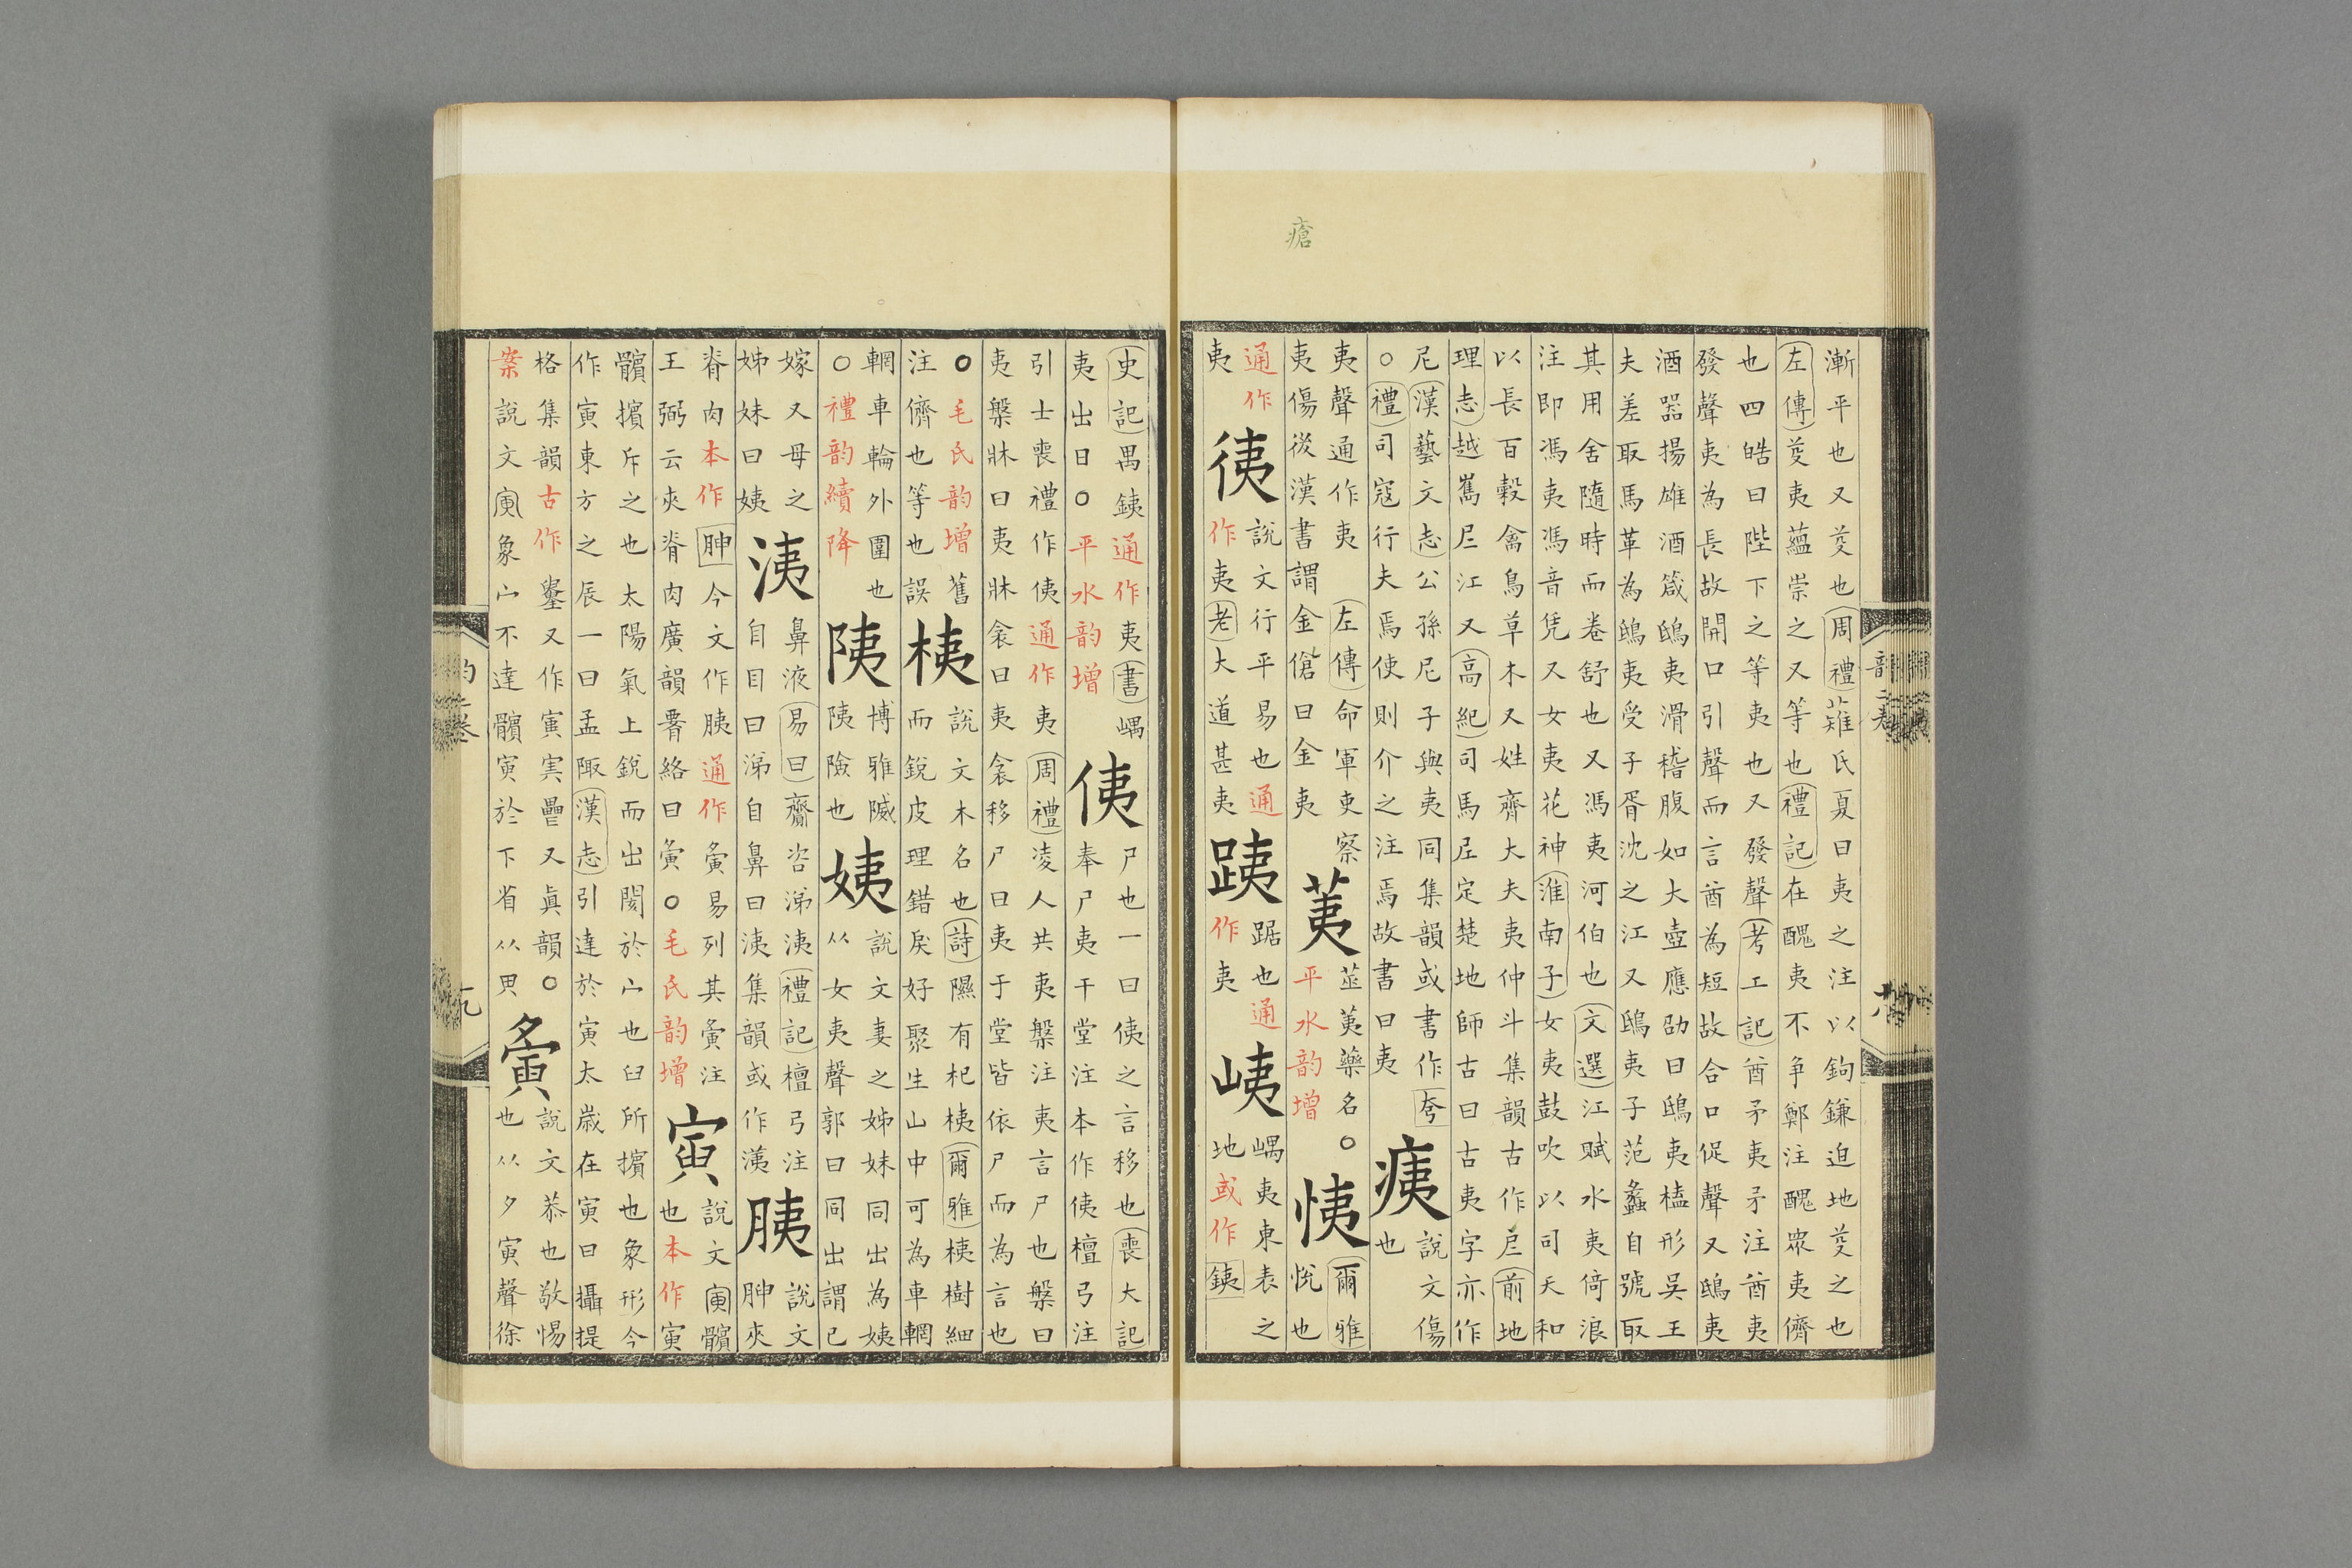 瘡
漸平也又芟也周禮薙氏夏日夷之注以鉤鎌迫地芟之也
左傳芟夷蘊崇之又等也禮記在醜夷不争鄭注醜眾夷儕
也四皓曰陛下之等夷也又發聲考工記酋矛夷矛注酋夷
發聲夷為長故開口引聲而言酋為短故合口促聲又鴟夷
酒噐揚雄酒箴鴟夷滑稽腹如大壺應劭曰鴟夷榼形吳王
夫差取馬革為鴟夷受子胥沈之江又鴟夷子范蠡自號取
其用舍隨時而卷舒也又馮夷河伯也文選江賦水夷倚浪
注即馮夷馮音凭又女夷花神淮南子女夷鼓吹以司天和
以長百穀禽鳥草木又姓齊大夫夷仲斗集韻古作𡰥前地
理志越嶲𡰥江又高紀司馬𡰥定楚地師古曰古夷字亦作
尼漢藝文志公孫尼子與夷同集韻或書作夸
○禮司寇行夫焉使則介之注焉故書曰夷
痍
說文傷
也
夷聲通作夷 左傳命軍吏察
夷傷後漢書謂金傖曰金夷
荑
莁荑藥名○
平水韵增
恞
爾雅
悅也
通作
夷
侇
說文行平易也通
作夷老大道甚夷
跠
踞也通
作夷
峓
嵎夷東表之
地或作銕
史記禺銕通作夷書嵎
夷出日○平水韵增
侇
尸也一曰侇之言移也喪大記
奉尸夷于堂注本作侇檀弓注
引士喪禮作侇通作夷周禮凌人共夷槃注夷言尸也槃曰
夷槃牀曰夷牀衾曰夷衾移尸曰夷于堂皆依尸而為言也
○毛氏韵增 舊
注儕也等也誤
桋
說文木名也詩隰有杞桋爾雅桋樹細
而銳皮理錯戾好聚生山中可為車輞
輞車輪外圍也
○禮韵續降
陦
博雅陿
陦險也
姨
說文妻之姊妹同出為姨
从女夷聲郭曰同出謂已
嫁又母之
姊妹曰姨
洟
鼻液易曰齎咨涕洟禮記檀弓注
自目曰涕自鼻曰洟集韻或作潰
胰
說文
胂夾
脊肉本作胂今文作胰通作夤易列其夤注
王弼云夾脊肉廣韻䐜絡曰夤○毛氏韵增
寅
說文寅髕
也本作寅
髕擯斥之也太陽氣上銳而出閡於宀也臼所擯也象形今
作寅東方之辰一曰孟陬漢志引達於寅太歲在寅曰攝提
格集韻古作𡔷又作寅寅𡩟又眞韻○
案說文寅象宀不達髕寅於下省从𦥔
夤
說文恭也敬惕
也从夕寅聲徐